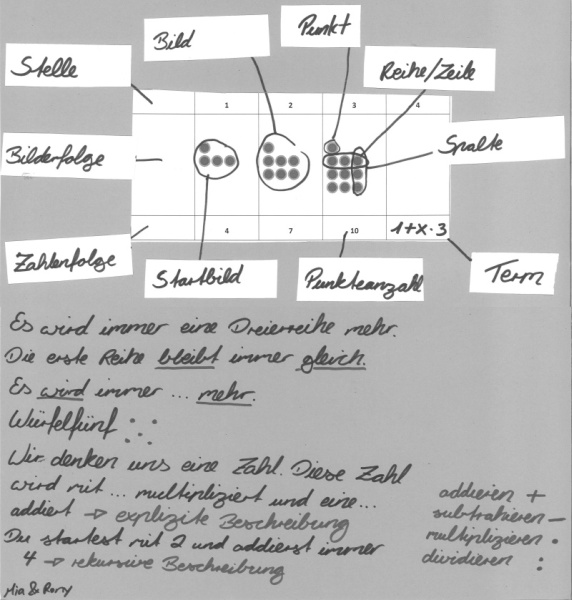 Punkt
Bild
Stelle
Reihe/Zeile
1 2 3 4
Spalte
Bilderfolge
4 7 10 1+x·3
Zahlenfolge
Startbild
Punkteanzahl
Term
Es wird immer eine Dreierreihe mehr.
Die erste Reihe bleibt immer gleich.
Es wird immer ... mehr.
Würfelfünf
Wir denken uns eine Zahl. Diese Zahl
wird mit ... multipliziert und eine ...
addiert → explizite Beschreibung
Du startest mit 2 und addierst immer
4 → rekursive Beschreibung
addieren +
subtrahieren −
multiplizieren ·
dividieren :
Mia & Romy